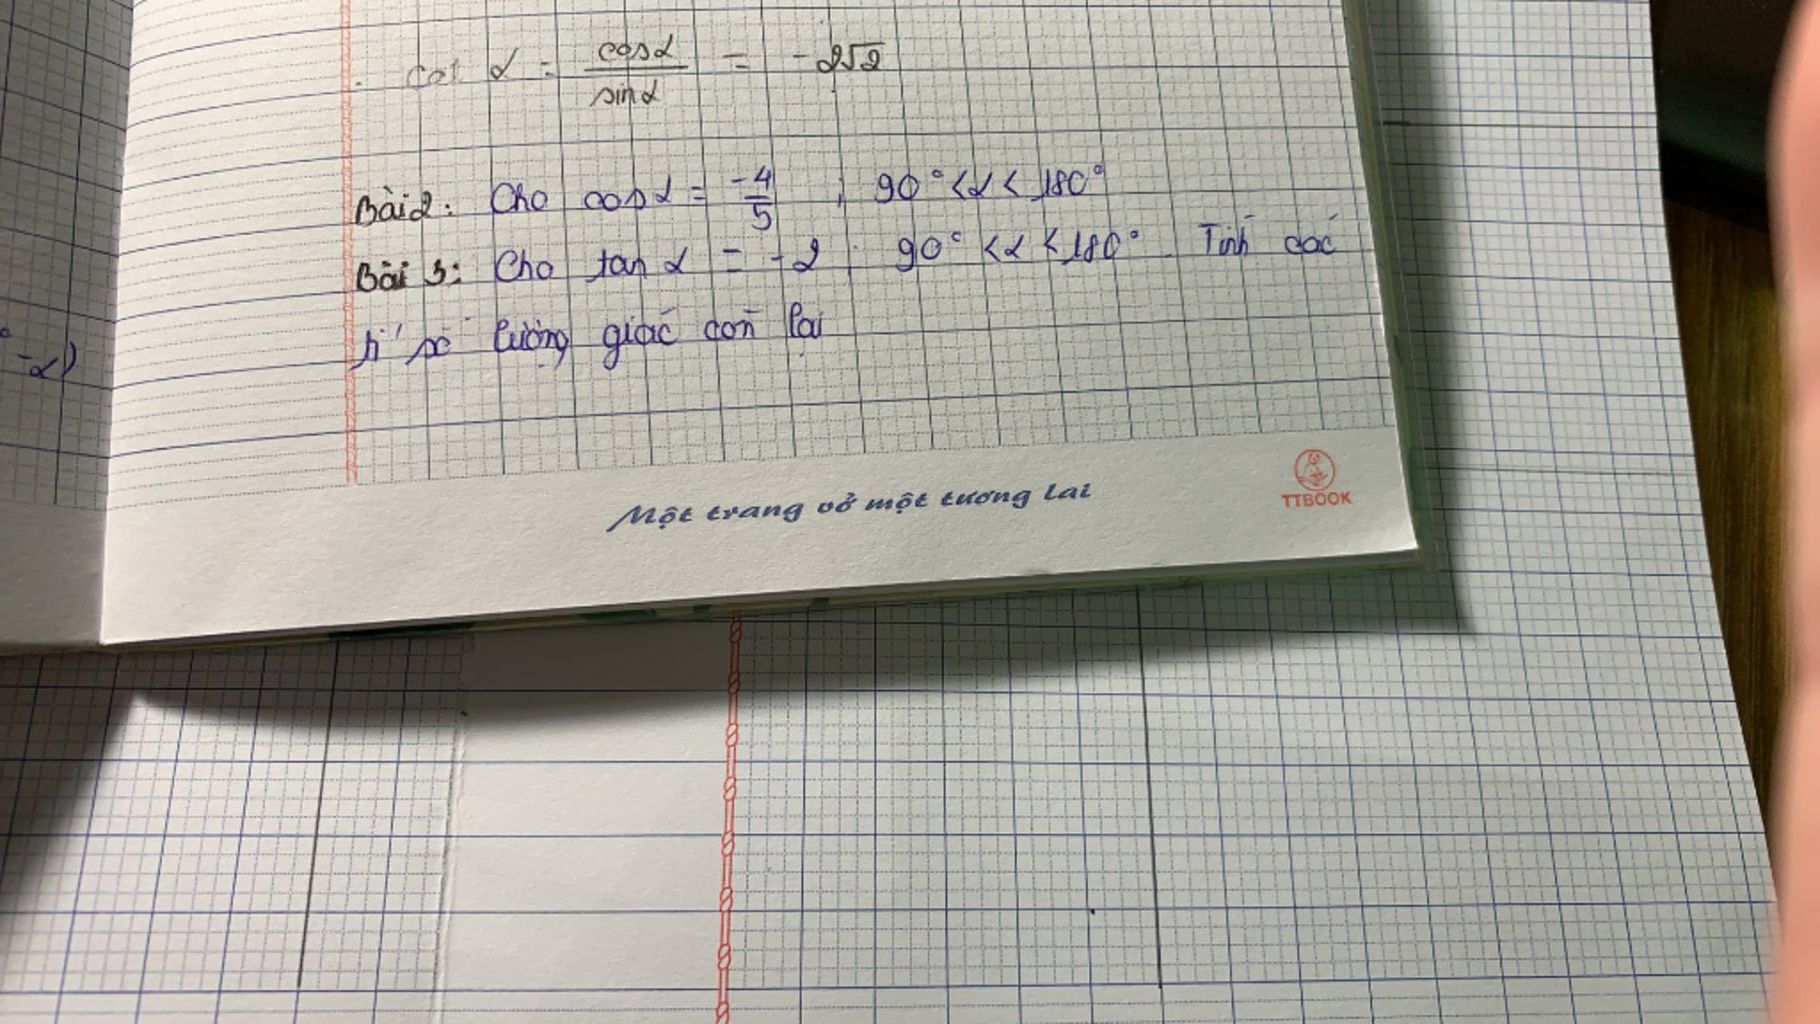 cot α = cosα / sinα = -2√2
Bài 2: Cho cosα = -4/5 ; 90° < α < 180°
Bài 3: Cho tan α = -2 ; 90° < α < 180°. Tính các
tỉ số lượng giác còn lại
-α)
Một trang vở một tương lai
TTBOOK